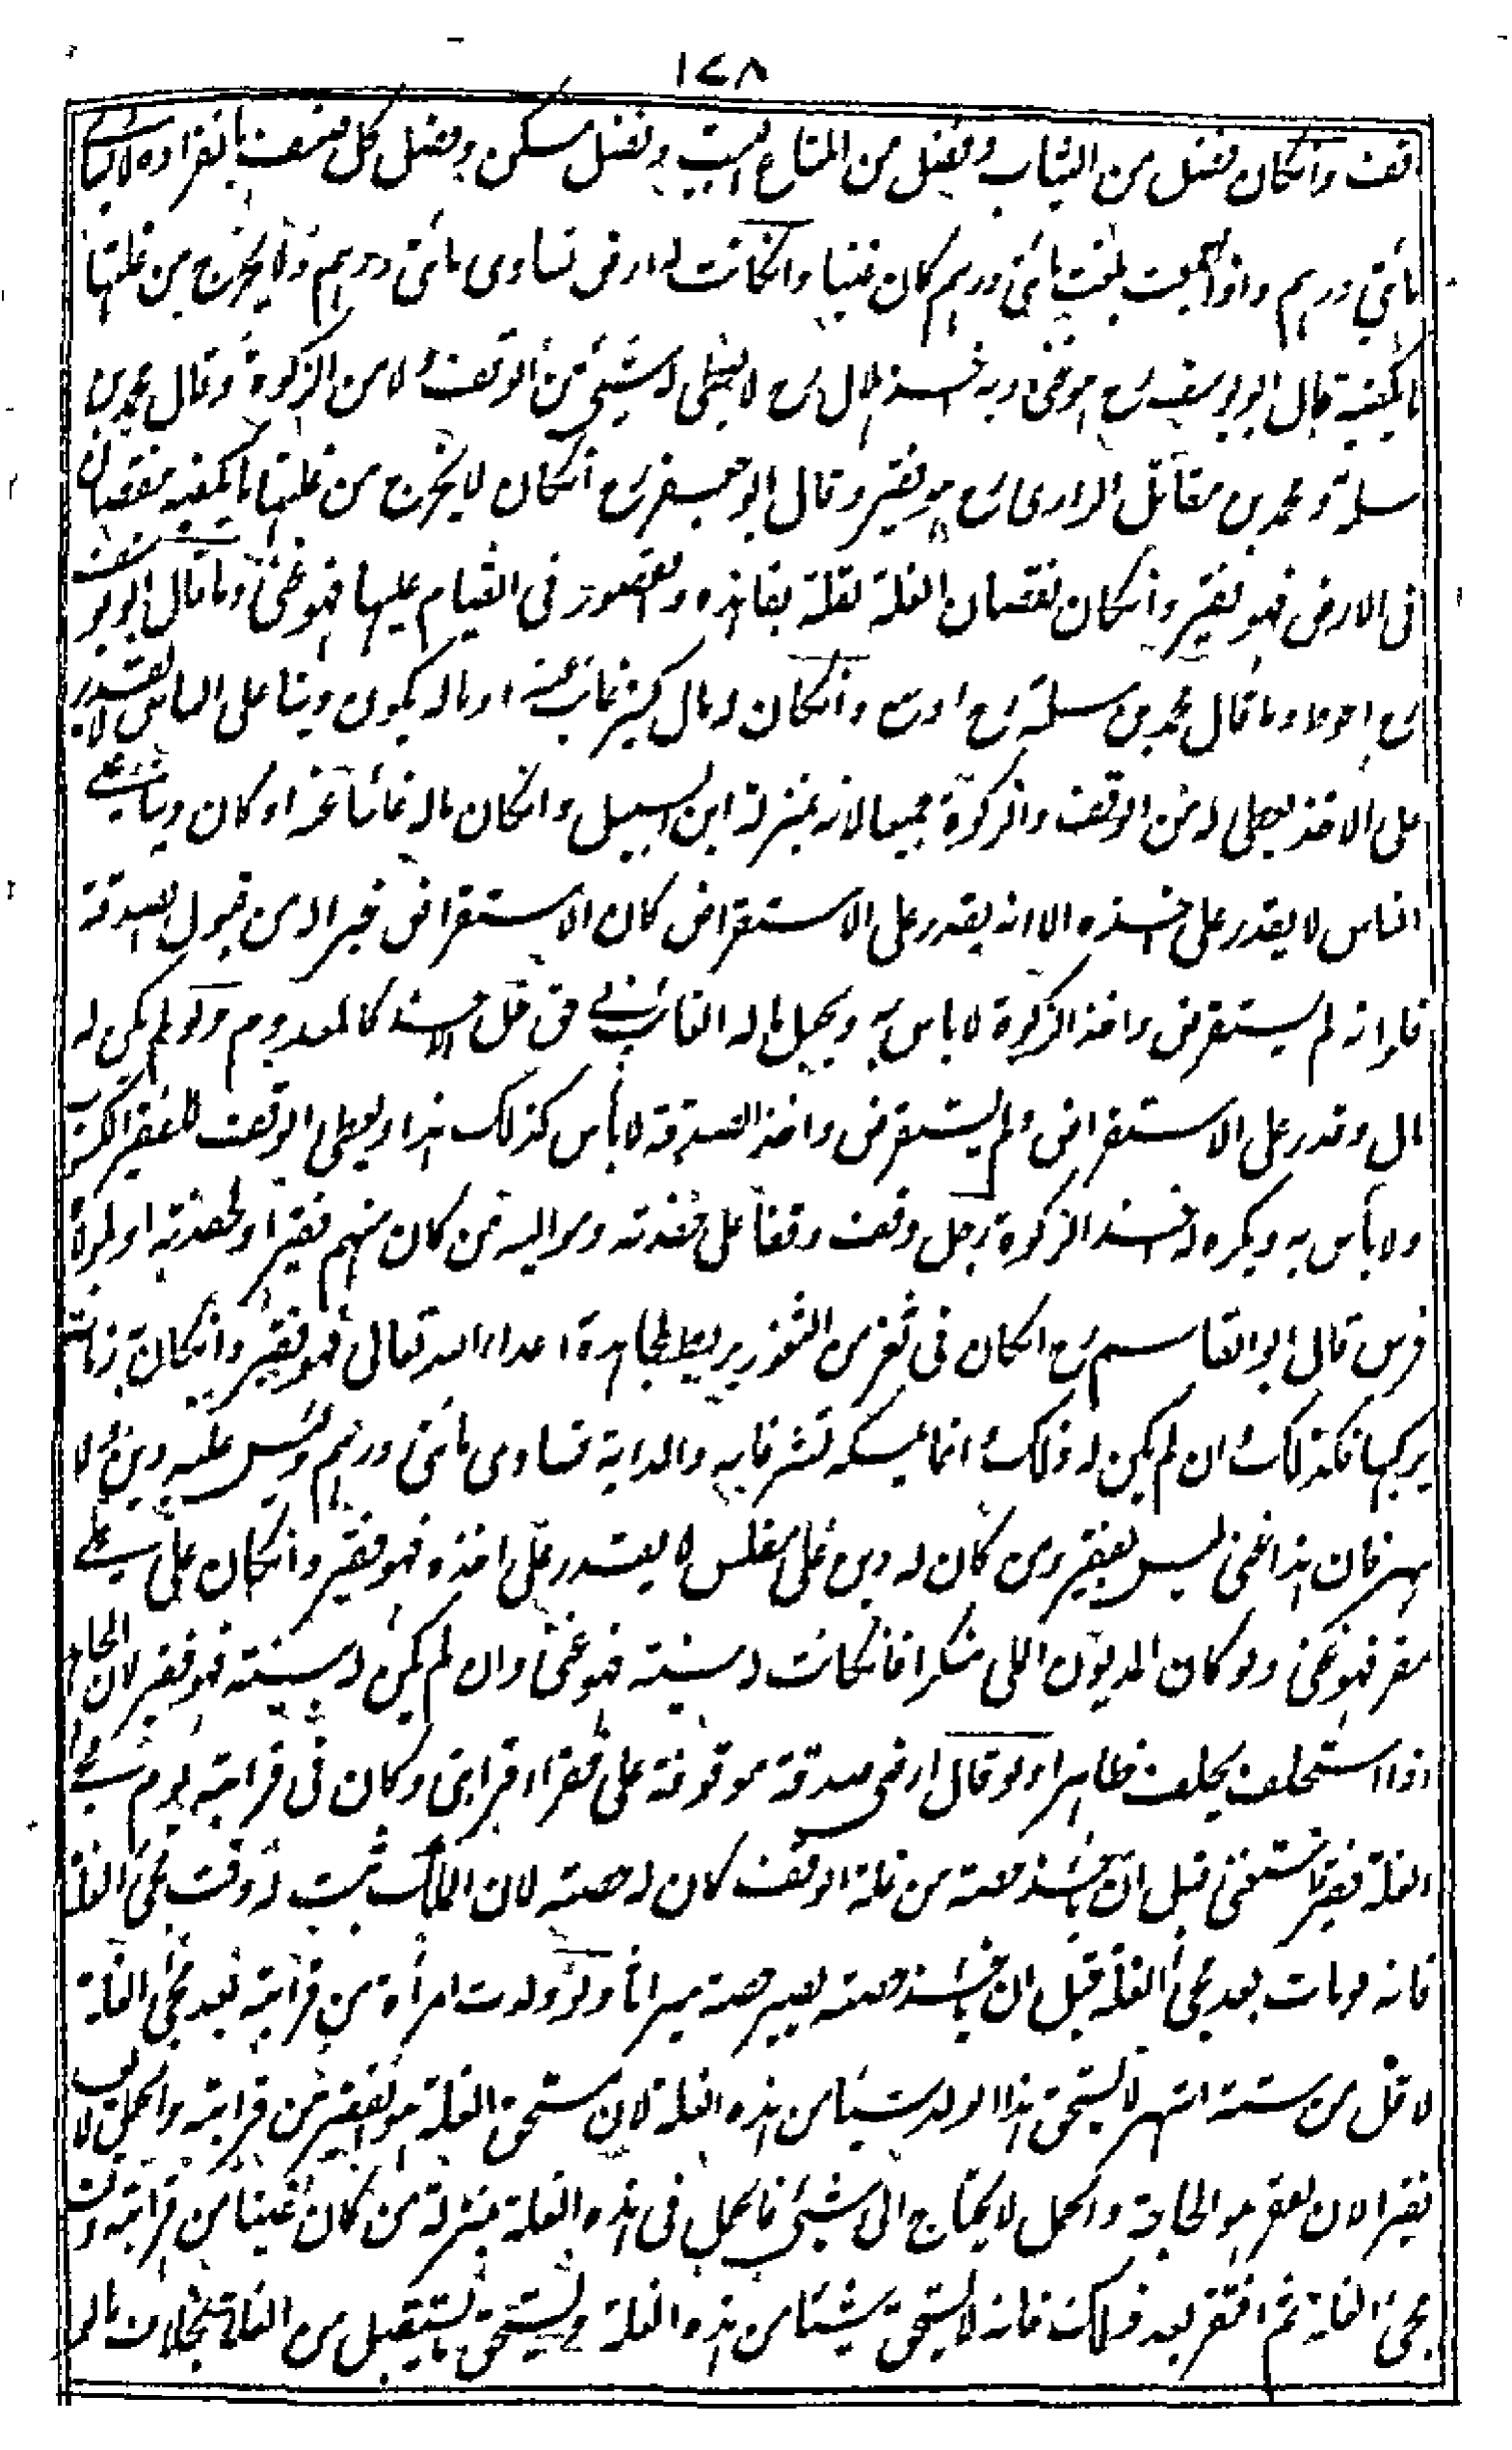 ١٤٨
وقف وانكان فضل من الثياب وفضل من المتاع البيت وفضل مسكن وفضل كل صنف بانفراده لا يساوى
مائتى درهم واذا جمعت بلغت مائتى درهم كان غنيا وانكانت له ارض تساوى مائتى درهم ولا يخرج من غلتها
ما يكفيه قال ابو يوسف رح هو غنى وبه اخذ هلال رح لا يعطى له شيئ من الوقف ولا من الزكوة وقال محمد بن
سلمة ومحمد بن مقاتل الرازى رح هو فقير وقال ابو جعفر رح انكان لا يخرج من غلتها ما يكفيه لنقصان
فى الارض فهو فقير وانكان نقصان الغلة لقلة تعاهده وتقصور فى القيام عليها فهو غنى وما قال ابو يوسف
رح احوط وما قال محمد بن سلمة رح اوسع وانكان له مال كثير غائب عنه او ماله يكون دينا على الناس لا يقدر
على الاخذ يعطى له من الوقف والزكوة جميعا لانه بمنزلة ابن السبيل وانكان ماله غائبا عنه او كان دينا على
الناس لا يقدر على اخذه الا انه يقدر على الاستقراض كان الاستقراض خيرا له من قبول الصدقة
فلو انه لم يستقرض واخذ الزكوة لا باس به ويجعل ماله الغائب فى حق حل الاخذ كالمعدوم ولو لم يكن له
مال وقدر على الاستقراض ولم يستقرض واخذ الصدقة لا بأس كذلك هذا ويعطى الوقف للفقير الكسوب
ولا بأس به ويكره له اخذ الزكوة رجل وقف وقفا على حفدته ومواليه فمن كان منهم فقيرا ولحفدته اولمولاه
فرس قال ابو القاسم رح انكان فى ثغر من الثغور يربطه لمجاهدة اعداء الله تعالى فهو فقير وانكان به زمانة
يركبها فكذلك وان لم يكن له ذلك وانما يمسكه تشرفا به والدابة تساوى مائتى درهم وليس عليه دين ولا
مهر فان هذا غنى ليس بفقير ومن كان له دين على مفلس لا يقدر على اخذه فهو فقير وانكان على ملى
مقر فهو غنى ولو كان المديون الملى منكرا فانكانت له بينة فهو غنى وان لم يكن له بينة فهو فقير لان الجاحد
اذا استحلف يحلف ظاهرا ولو قال ارضى صدقة موقوفة على فقراء قرابتى وكان فى قرابته يوم مجئ
الغلة فقير فاستغنى قبل ان ياخذ حصته من غلة الوقف كان له حصته لان الملك ثبت له وقت مجئ الغلة
فانه لو مات بعد مجئ الغلة قبل ان ياخذ حصته يصير حصته ميراثا ولو ولدت امرأة من قرابته بعد مجئ الغلة
لاقل من ستة اشهر لا يستحق هذا الولد شيئا من هذه الغلة لان مستحق الغلة هو الفقير من قرابته والحمل لا يعد
فقيرا لان الفقر هو الحاجة والحمل لا يحتاج الى شيئ فالحمل فى هذه الغلة بمنزلة من كان غنيا من قرابته وقت
مجئ الغلة ثم افتقر بعد ذلك فانه لا يستحق شيئا من هذه الغلة ويستحق ما يستقبل من الغلة بخلاف ما لو